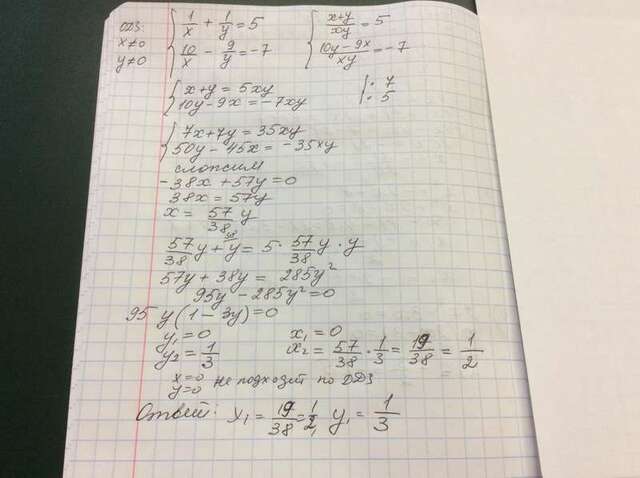 ОДЗ: x≠0 y≠0
{ 1/x + 1/y = 5
{ 10/x - 9/y = -7
{ x+y/xy = 5
{ 10y-9x/xy = -7
{ x+y = 5xy | · 7
{ 10y-9x = -7xy | · 5
{ 7x+7y = 35xy
{ 50y - 45x = -35xy
сложим
-38x + 57y = 0
38x = 57y
x = 57/38 y
57/38 y + y = 5 · 57/38 y · y
57y + 38y = 285y²
95y - 285y² = 0
95y(1 - 3y) = 0
y₁ = 0 x₁ = 0
y₂ = 1/3 x₂ = 57/38 · 1/3 = 19/38 = 1/2
x=0 y=0 не подходит по ОДЗ
Ответ: x₁ = 19/38 = 1/2, y₁ = 1/3